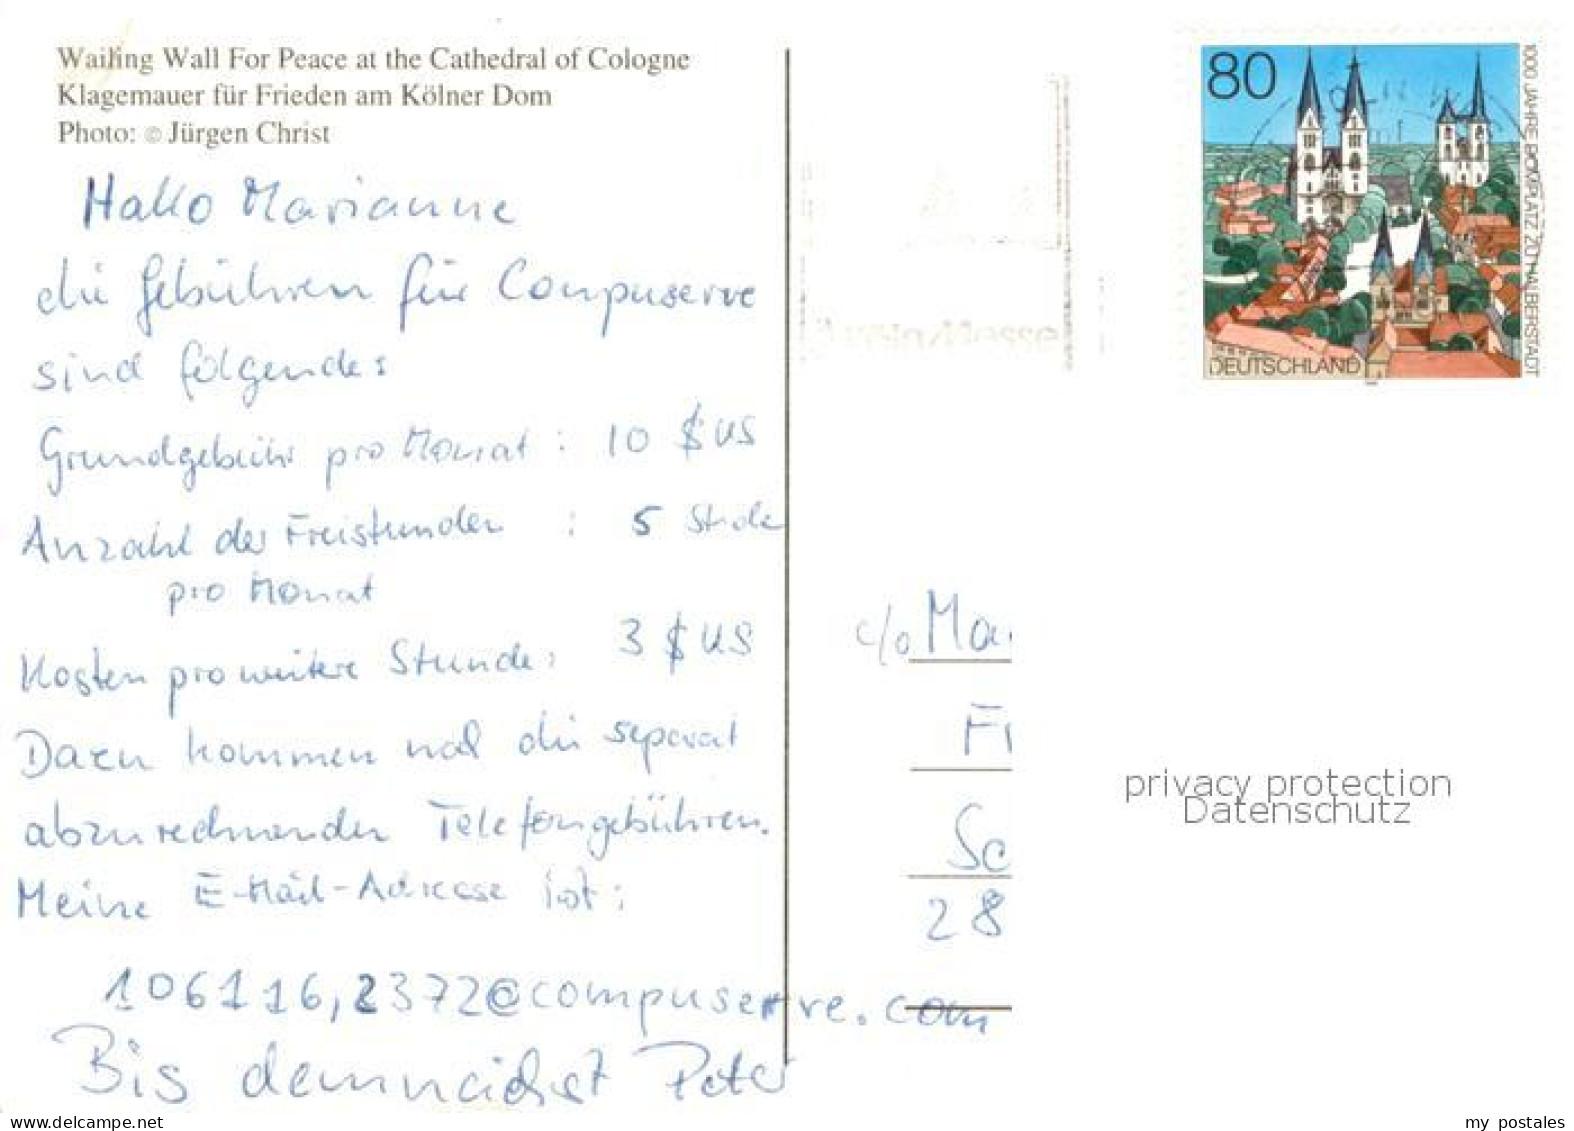 Wailing Wall For Peace at the Cathedral of Cologne
Klagemauer für Frieden am Kölner Dom
Photo: © Jürgen Christ
Hallo Marianne
die Gebühren für Compuserve
sind folgende:
Grundgebühr pro Monat : 10 $ US
Anzahl der Freistunden : 5 Stde
pro Monat
Kosten pro weitere Stunde: 3 $ US
Dazu kommen noch die separat
abzurechnenden Telefongebühren.
Meine E-Mail-Adresse ist:
106116,2372@compuserve.com
Bis demnächst Peter
80
1000 JAHRE DOMPLATZ ZU HALBERSTADT
DEUTSCHLAND
c/o Mar
Fr
Sc
28
privacy protection
Datenschutz
www.delcampe.net
my_postales